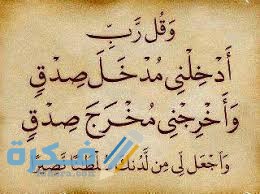 وَقُل رَّبِّ
أَدْخِلْنِى مُدْخَلَ صِدْقٍ
وَأَخْرِجْنِى مُخْرَجَ صِدْقٍ
وَٱجْعَل لِّى مِن لَّدُنكَ سُلْطَٰنًا نَّصِيرًا
فكرة